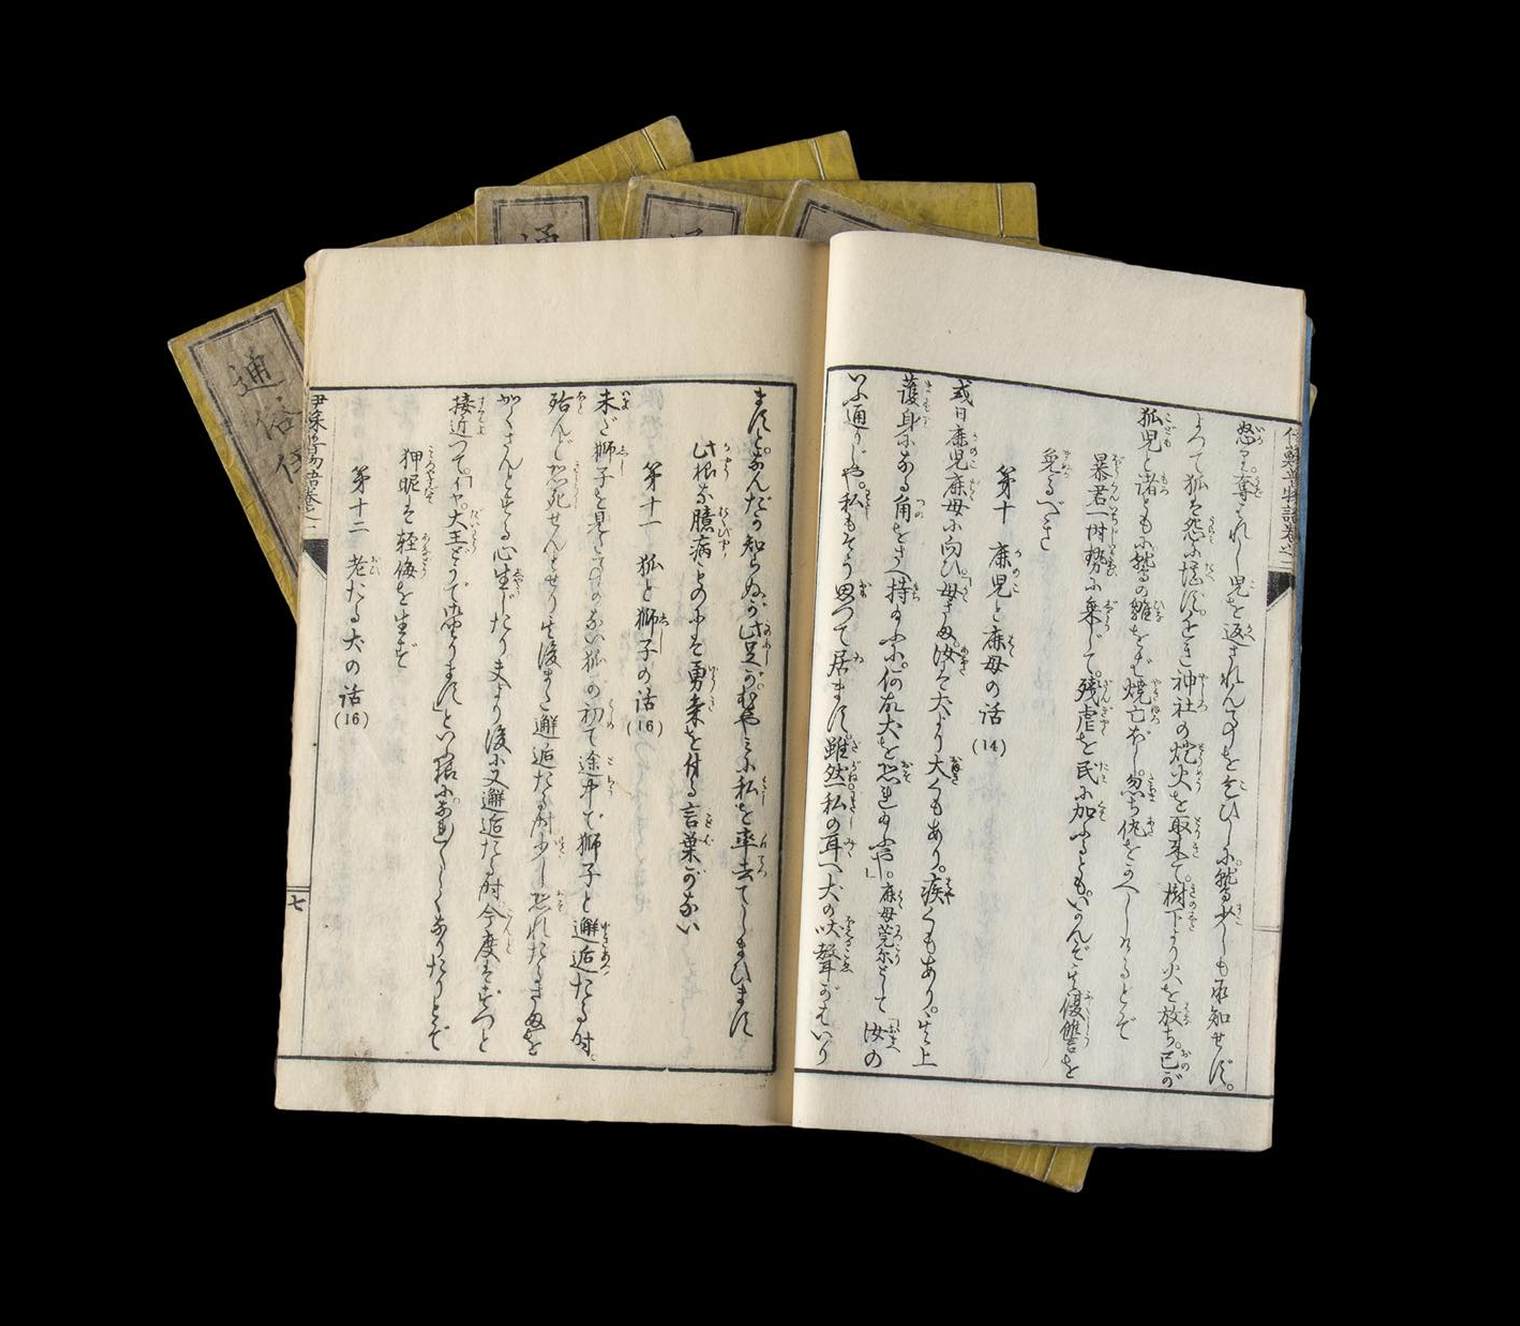 怒り奪れし児を返されんことをこひしに鷲少しも承知せず。
よつて狐は怨に堪ず。やしろの炬火を取来て。樹下より火を放ち。己が
狐児と諸ともに鷲の雛をも焼亡ぼし。忽ち仇をかへしけるとぞ
暴君一時勢に乗じて。残虐を民に加ふるとも。いかんぞ其復讐を
免るべき
第十 鹿児と鹿母の話(14)
或日鹿児鹿母に向ひ。「母さま。汝は犬より大くもあり。疾くもあり。其上
護身になる角をさへ持給ふに。何故犬を恐給ふや。」鹿母莞尓として「汝の
いふ通りじや。私もそう思つて居ます。雖然私の耳へ犬の吠声がはいり
ますと。なんだか知らぬが此足が。むやみに私を率去てしまひます
此根な臆病ものには勇気を付る言葉がない
第十一 狐と獅子の話(16)
未だ獅子を見たことのない狐の初て途中で獅子と邂逅たる時。
殆んど恐死せんとせり其後また邂逅たる時少し恐れたるさまを
かくさんとする心生じたり夫より後に又邂逅たる時今度はずつと
接近つて。「イヤ。大王どうで御座ります」といふ様になれ〳〵しくなりたりとぞ
狎昵は軽侮を生ず
第十二 老たる犬の話(16)
伊蘇普物語巻之一
七
通俗伊
通
通